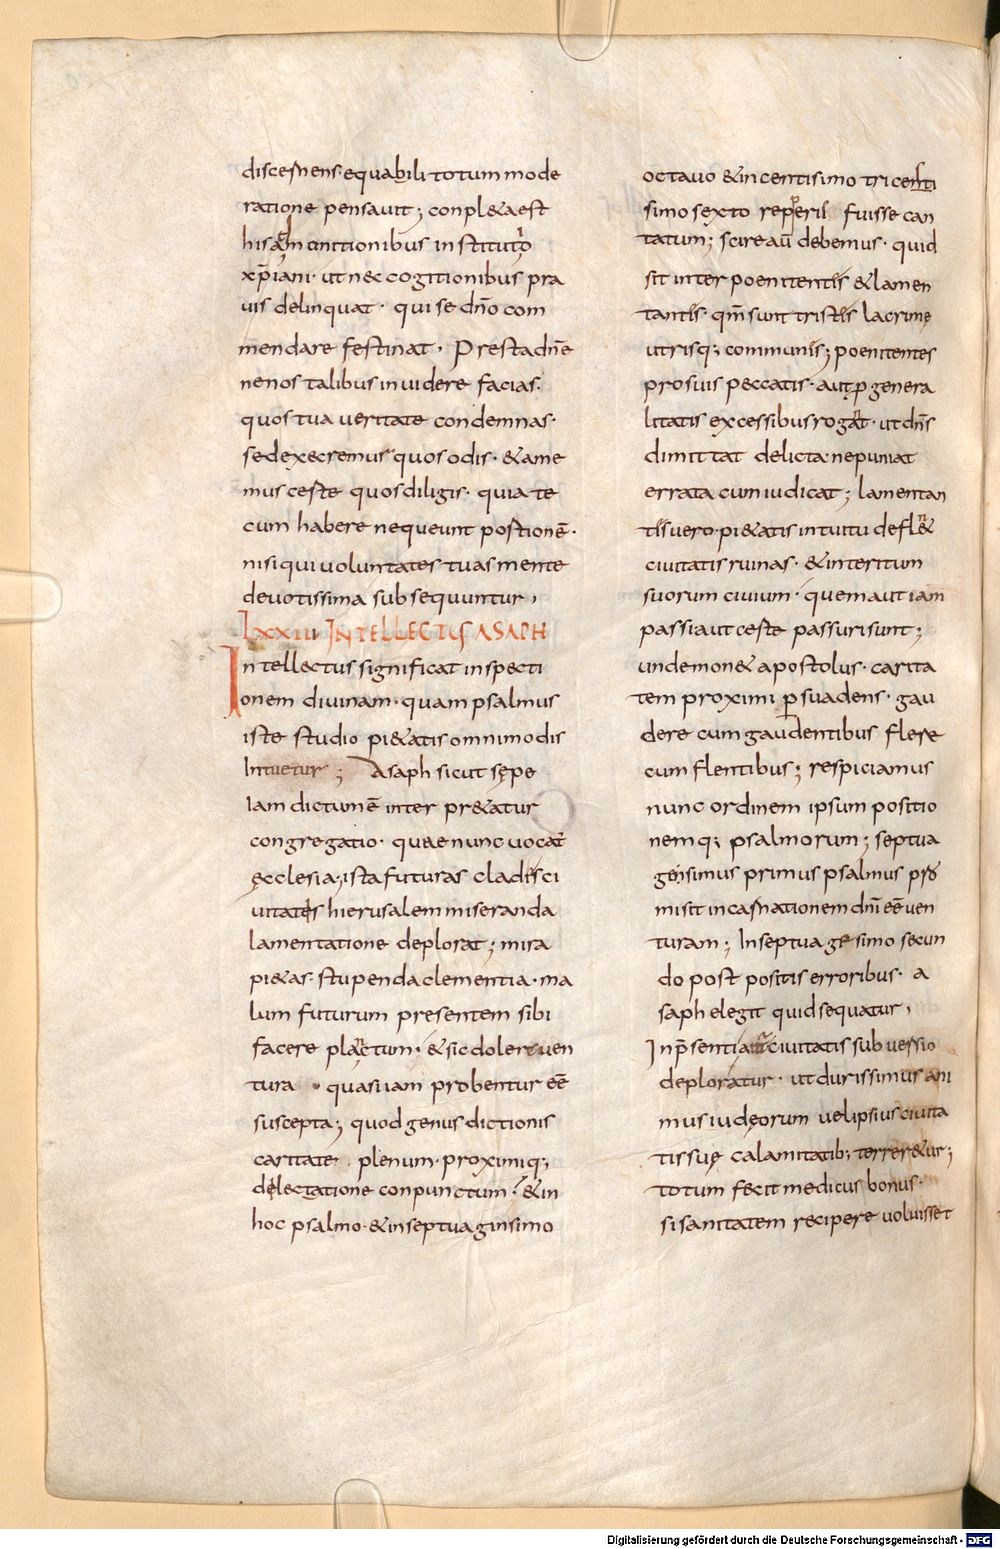 discernens· equabili totum mode
ratione pensauit; conpl&a est
his admonitionibus institutio
xp̄iani· ut nec cogitionibus pra
uis delinquat· qui se dn̄o com
mendare festinat· Presta dn̄e
ne nos talibus inuidere facias·
quos tua ueritate condemnas·
sed execremus quos odis· & ame
mus ceste quos diligis· quia te
cum habere nequeunt postionē·
nisi qui uoluntates tuas mente
deuotissima subsequuntur,
LXXIII INTELLECTUS ASAPH
Intellectus significat inspecti
onem diuinam· quam psalmus
iste studio pi&atis omnimodis
Intuetur; Asaph sicut sępe
Iam dictum ē inter pr&atur
congregatio· quae nunc uocat᷑
ęcclesia; ista futuras cladis ci
uitatis hierusalem miseranda
lamentatione deplorat; mira
pi&as· stupenda clementia· ma
lum futurum presentem sibi
facere planctum· & sic dolere uen
tura · quasi iam probentur eē
suscepta; quod genus dictionis
caritate plenum· proximiq;
delectatione conpunctum· & in
hoc psalmo· & in septuaginsimo
octauo & in centisimo tricenti
simo sexto repperil fuisse can
tatum; scire aū debemus· quid
sit inter poenitentis & lamen
tantis· qm̄ sunt tristis lacrimę
utrisq; communis; poenitentes
pro suis peccatis· aut ꝑ genera
litatis excessibus rogant· ut dn̄s
dimittat delicta· ne puniat
errata cum iudicat; lamentan
tis uero· pi&atis intuitu defl&
ciuitatis ruinas· & interitum
suorum ciuium· quem aut iam
passi aut ceste passuri sunt;
unde mon& apostolus· carita
tem proximi ꝑsuadens· gau
dere cum gaudentibus flere
cum flentibus; respiciamus
nunc ordinem ipsum positio
nemq; psalmorum; septua
gensimus primus psalmus pro
misit incarnationem dn̄i eē uen
turam; In septuagesimo secun
do post positis erroribus· a
saph elegit quid sequatur,
In p̄senti ciuitatis subuersio
deploratur· ut durissimus ani
mus iudęorum uel ipsius ciuita
tis suę calamitatib; terrer&ur;
totum fecit medicus bonus·
si sanitatem recipere uoluisset
Digitalisierung gefördert durch die Deutsche Forschungsgemeinschaft - DFG